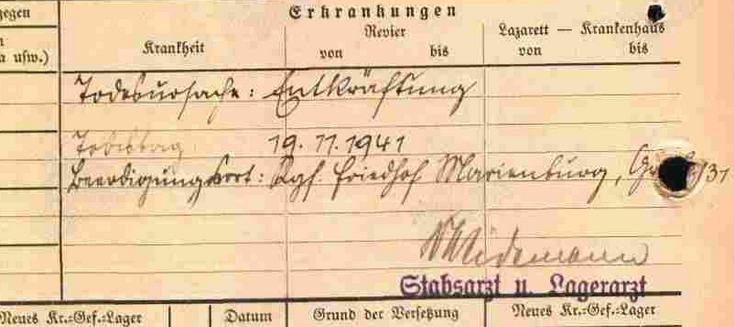 gegen Erkrankungen
Revier Lazarett — Krankenhaus
a usw.) Krankheit von bis von bis
Todesursache: Entkräftung
Todestag 19.11.1941
Beerdigungsort: Kgf. Friedhof Marienburg, /31
Stabsarzt u. Lagerarzt
Neues Kr.=Gef.=Lager Datum Grund der Versetzung Neues Kr.=Gef.=Lager